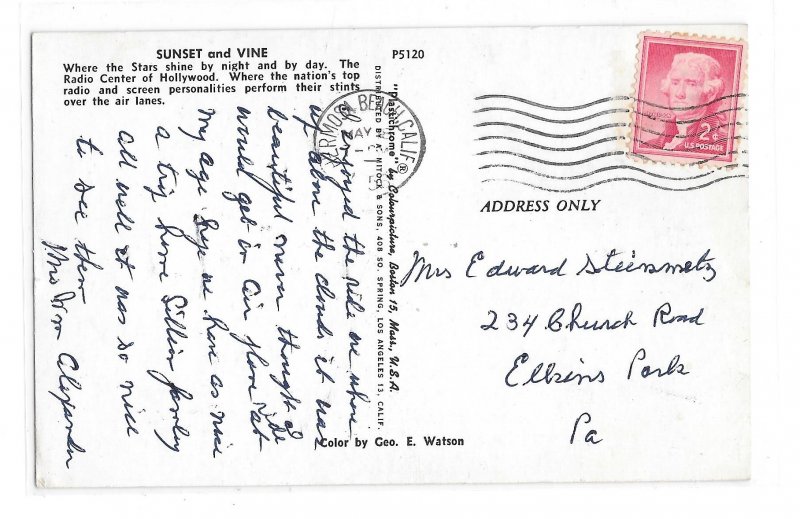 SUNSET and VINE
Where the Stars shine by night and by day. The
Radio Center of Hollywood. Where the nation's top
radio and screen personalities perform their stints
over the air lanes.
P5120
I enjoyed the ride we where
up above the clouds it was
beautiful never thought I
would get in air plane at
my age we have as nice
a trip home Family
all well it was so nice
to see them
Mrs Wm Alexander
"Plastichrome" by Colourpicture, Boston 15, Mass., U.S.A.
DISTRIBUTED BY A. MITOCK & SONS, 408 SO. SPRING, LOS ANGELES 13, CALIF.
Color by Geo. E. Watson
HERMOSA BEACH, CALIF
MAY
2¢
U.S. POSTAGE
ADDRESS ONLY
Mrs Edward Steinmetz
234 Church Road
Elkins Park
Pa